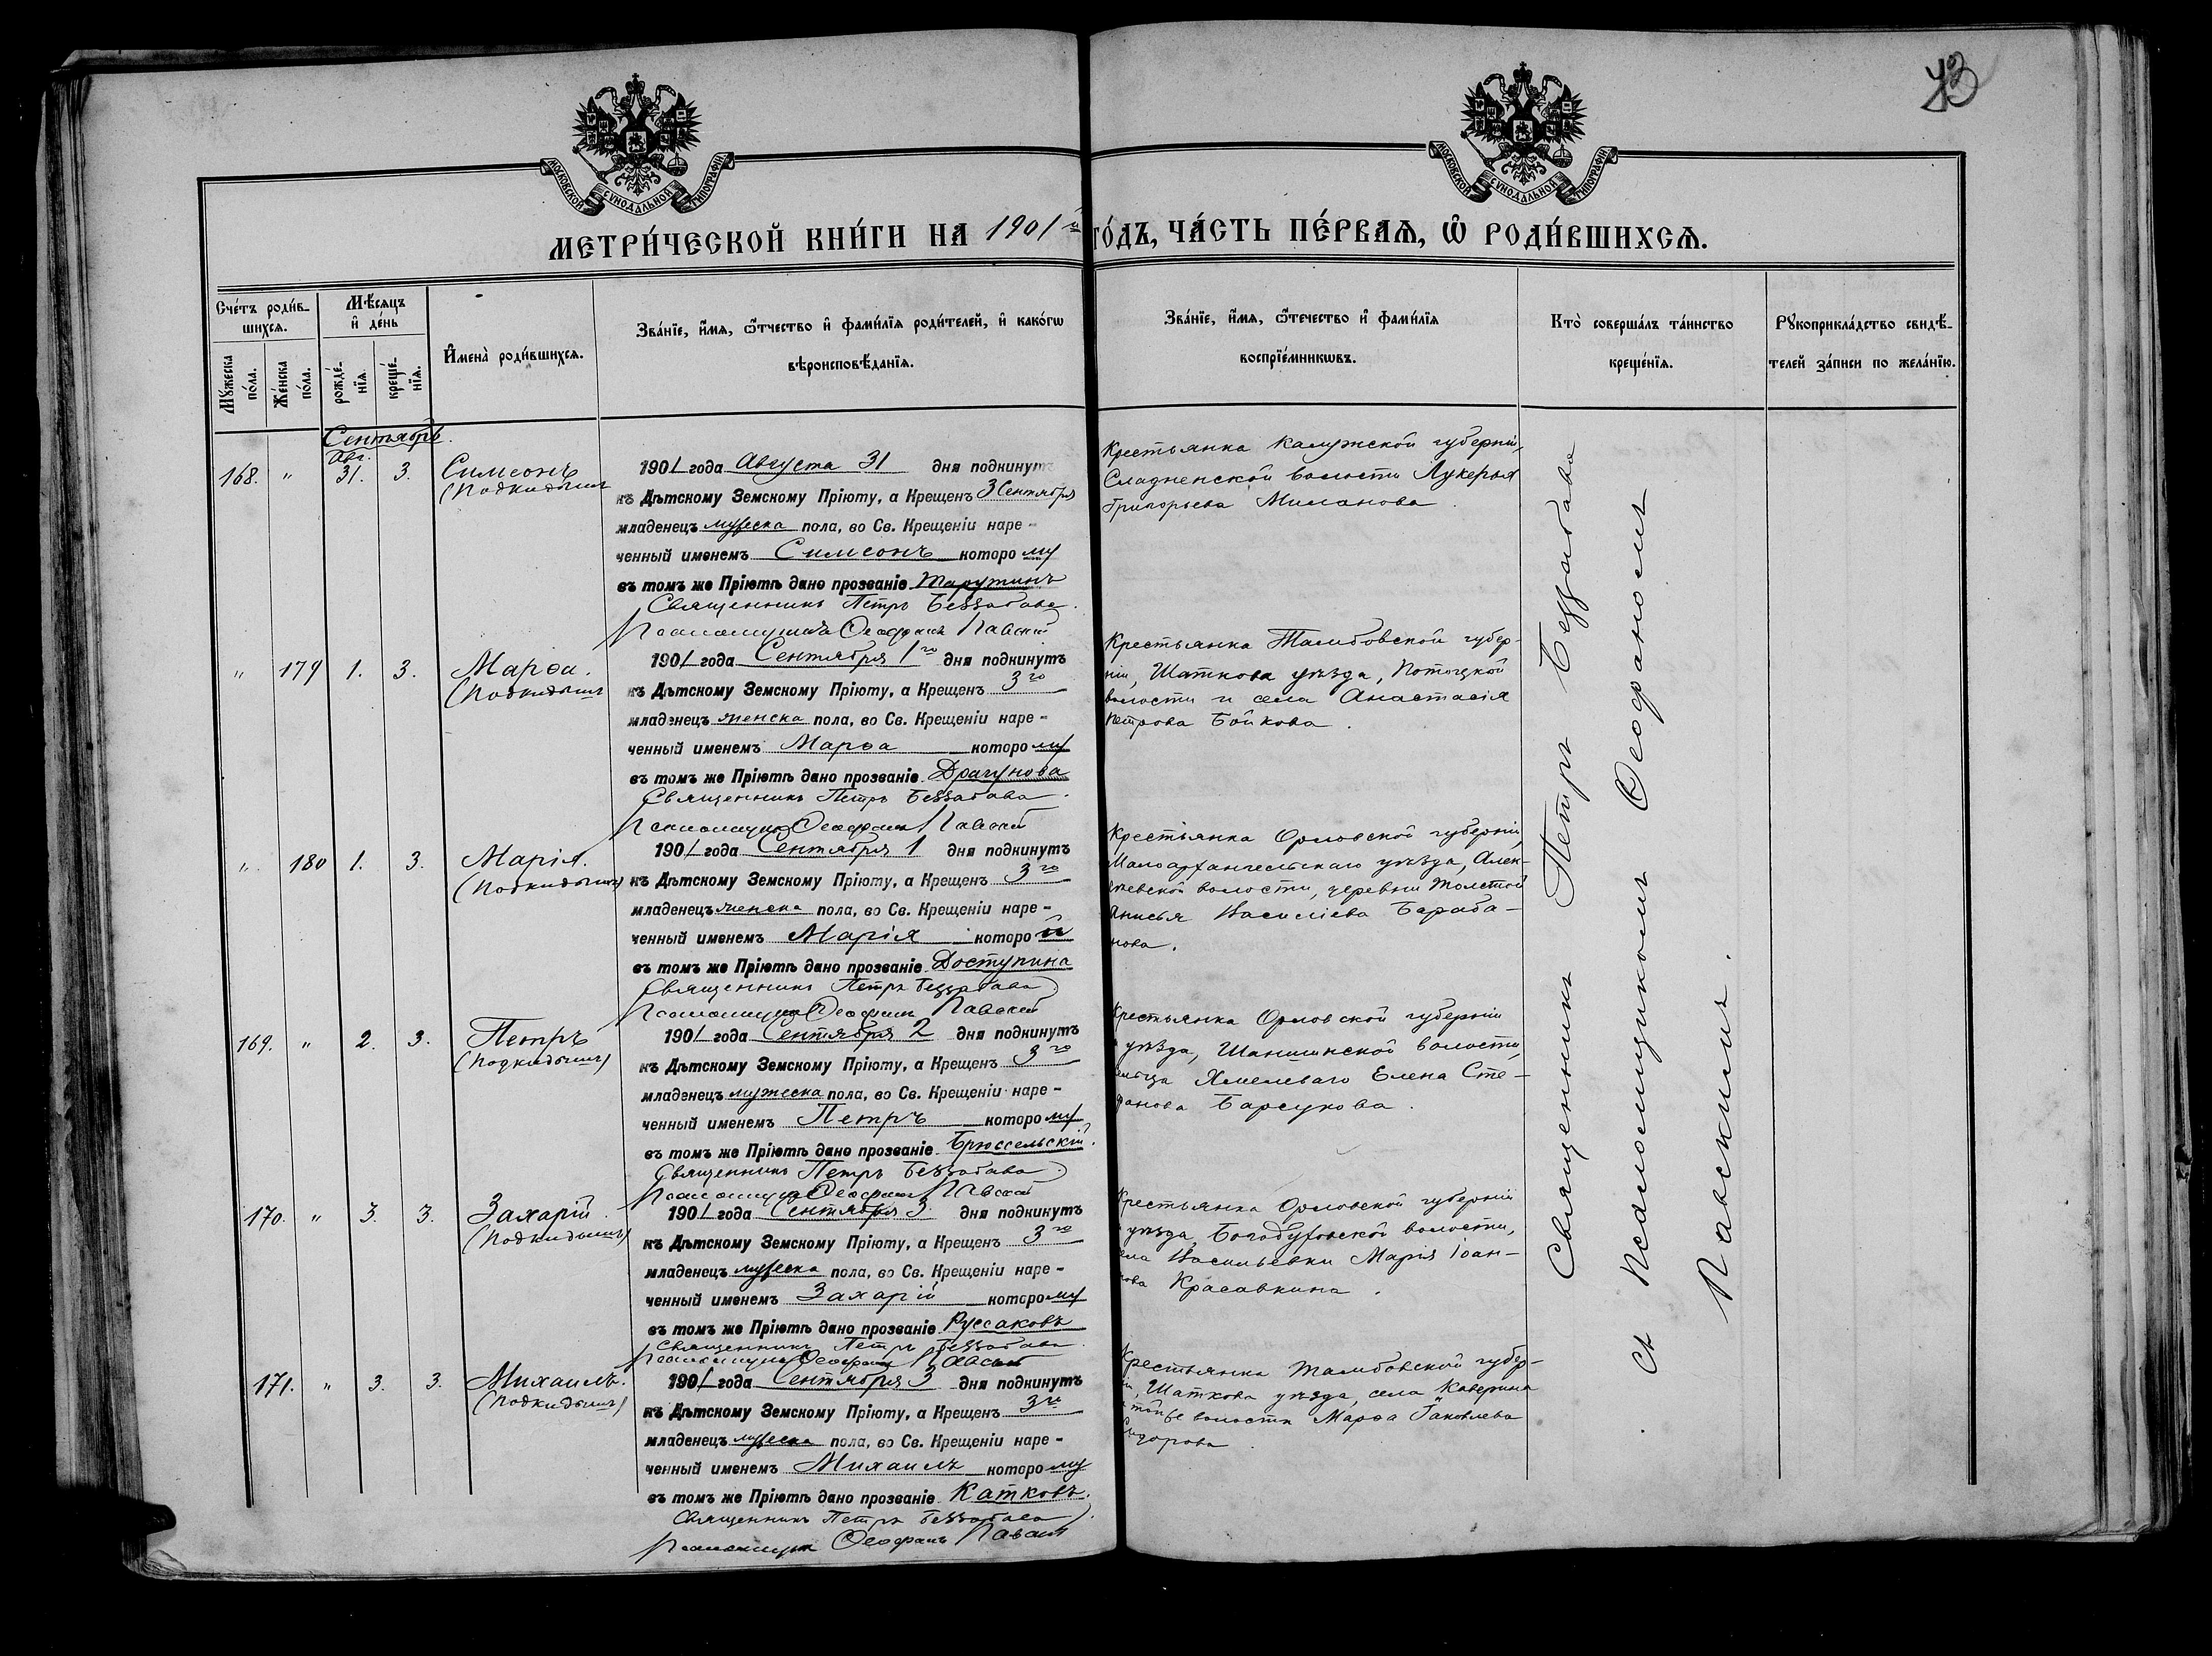 43
МОСКОВСКОЙ СУНОДАЛЬНОЙ ТИПОГРАФІИ
МОСКОВСКОЙ СУНОДАЛЬНОЙ ТИПОГРАФІИ
МЕТРИ́ЧЕСКОЙ КНИ́ГИ НА 1901 й ГО́ДЪ, ЧА́СТЬ ПЕ́РВАѦ, Ѡ РОДИ́ВШИХСѦ.
Сче́тъ роди́в-
шихсѧ.
Мꙋжеска по́ла.
Же́нска по́ла.
Мѣ́сѧцъ
и де́нь
рожде́-
нїѧ.
креще́-
нїѧ.
Имена̀ роди́вшихсѧ.
Зва́нїе, и́мѧ, ѻ҆́тчество и҆ фами́лїѧ роди́телей, и҆ како́гѡ
вѣроисповѣ́данїѧ.
Зва́нїе, и́мѧ, ѻ҆те́чество и҆ фами́лїѧ
воспрїе́мникѡвъ.
Кто̀ соверша́лъ та́инство
креще́нїѧ.
Рꙋкоприкла́дство свидѣ́-
телей за́писи по жела́нїю.
Сентябрь.
168. " Авг. 31. 3. Симеонъ
(Подкидышъ
1901 года Августа 31 дня подкинутъ
къ Дѣтскому Земскому Пріюту, а Крещенъ 3 Сентября
младенецъ мужеска пола, во Св. Крещеніи наре-
ченный именемъ Симеонъ которому
въ томъ же Пріютѣ дано прозваніе Тарутинъ
Священникъ Петръ Беззабава.
Псаломщикъ Ѳеофанъ Павскій
Крестьянка Калужской губерніи,
волости Лукерья
Григорьева Миланова.
" 179 1. 3. Марѳа.
(Подкидышъ
1901 года Сентября 1го дня подкинутъ
къ Дѣтскому Земскому Пріюту, а Крещенъ 3го
младенецъ женска пола, во Св. Крещеніи наре-
ченный именемъ Марѳа которому
въ томъ же Пріютѣ дано прозваніе Драгунова
Священникъ Петръ Беззабава.
Псаломщикъ Ѳеофанъ Павскій
Крестьянка Тамбовской губер-
ніи, Шаткова уѣзда,
волости и села Анастасія
Петрова Бойкова.
" 180 1. 3. Марія.
(Подкидышъ)
1901 года Сентября 1 дня подкинутъ
къ Дѣтскому Земскому Пріюту, а Крещенъ 3го
младенецъ женска пола, во Св. Крещеніи наре-
ченный именемъ Марія которой
въ томъ же Пріютѣ дано прозваніе Доступина
Священникъ Петръ Беззабава
Псаломщикъ Ѳеофанъ Павскій
Крестьянка Орловской губерніи
Малоархангельскаго уѣзда, Алек-
волости, деревни Толстой
Анисья Василіева Бараба-
нова.
169. " 2. 3. Петръ
(Подкидышъ)
1901 года Сентября 2 дня подкинутъ
къ Дѣтскому Земскому Пріюту, а Крещенъ 3го
младенецъ мужеска пола, во Св. Крещеніи наре-
ченный именемъ Петръ которому
въ томъ же Пріютѣ дано прозваніе Брюссельскій.
Священникъ Петръ Беззабава
Псаломщикъ Ѳеофанъ Павскій
Крестьянка Орловской губерніи
уѣзда, волости,
Хмелеваго Елена Сте-
фанова Барсукова.
170. " 3. 3. Захарій
(Подкидышъ)
1901 года Сентября 3 дня подкинутъ
къ Дѣтскому Земскому Пріюту, а Крещенъ 3го
младенецъ мужеска пола, во Св. Крещеніи наре-
ченный именемъ Захарій которому
въ томъ же Пріютѣ дано прозваніе Руссаковъ
Священникъ Петръ Беззабава.
Псаломщикъ Ѳеофанъ Павскій
Крестьянка Орловской губерніи
уѣзда, Богодуховской волости,
села Васильевки Марія Іоан-
нова Красавкина.
171. " 3. 3. Михаилъ.
(Подкидышъ)
1901 года Сентября 3 дня подкинутъ
къ Дѣтскому Земскому Пріюту, а Крещенъ 3го
младенецъ мужеска пола, во Св. Крещеніи наре-
ченный именемъ Михаилъ которому
въ томъ же Пріютѣ дано прозваніе Катковъ.
Священникъ Петръ Беззабава
Псаломщикъ Ѳеофанъ Павскій
Крестьянка Тамбовской губер-
ніи, Шаткова уѣзда, села Каверина
той же волости Марѳа Іаковлева
Сидорова.
Священникъ Петръ Беззабава
съ Псаломщикомъ Ѳеофаномъ
Павскимъ.